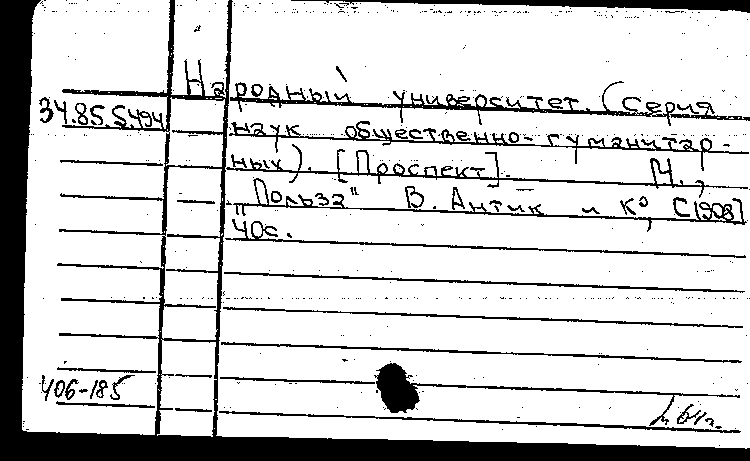 Народный университет. (Серия
34.85.5.494
наук общественно-гуманитар-
ных). [Проспект]. М.,
"Польза" В. Антик и К°, [1908]
40с.
406-185